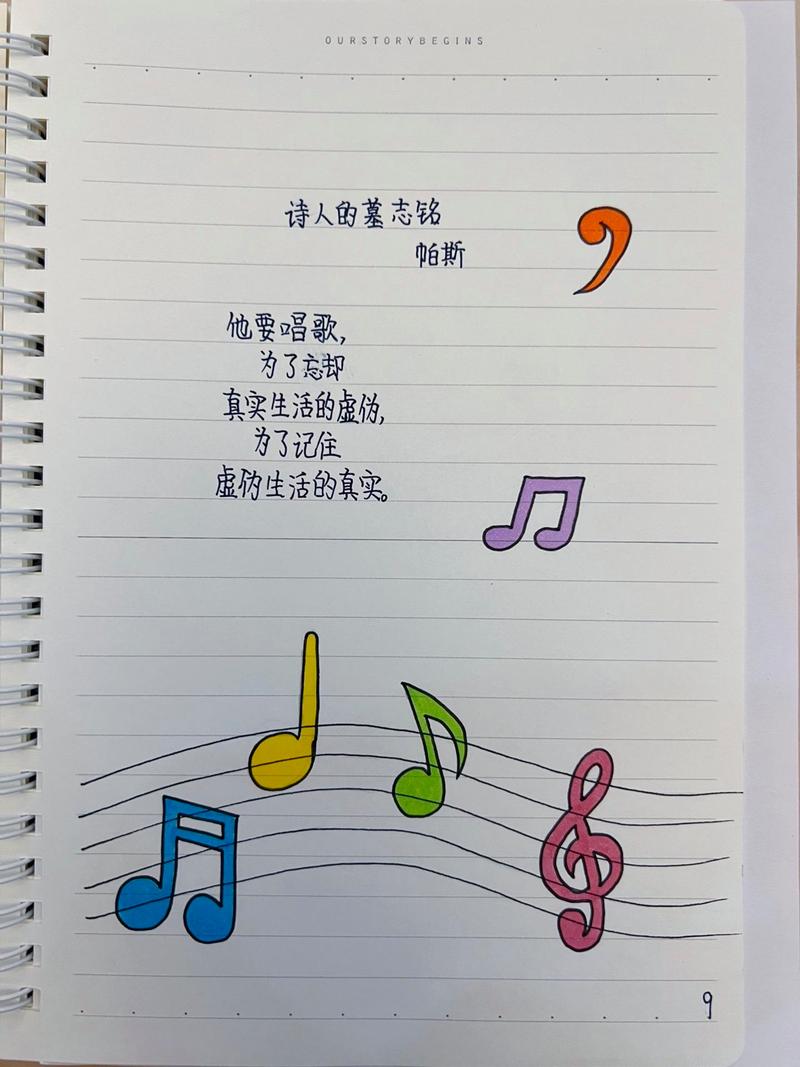 OURSTORYBEGINS
诗人的墓志铭
帕斯
他要唱歌,
为了忘却
真实生活的虚伪,
为了记住
虚伪生活的真实。
9